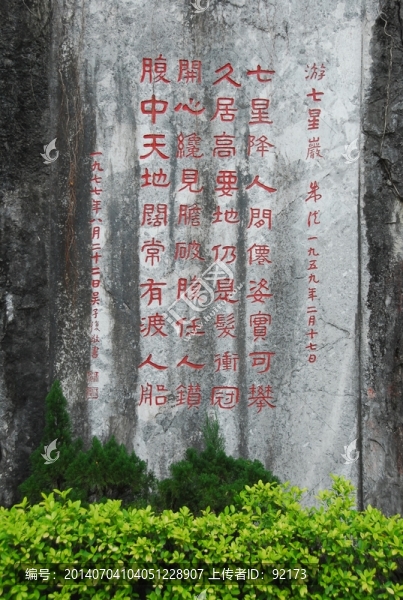 游七星巖 朱德 一九五九年二月十七日
七星降人間僊姿實可攀
久居高要地仍是髮衝冠
開心纔見膽破任人鑽
腹中天地闊常有渡人船
一九七七年八月二十二日吴子復書
编号：20140704104051228907 ID：92173